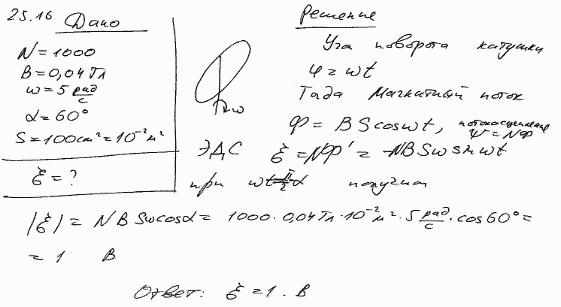 25.16 Дано
N = 1000
B = 0,04 Тл
ω = 5 рад/с
α = 60°
S = 100 см² = 10⁻² м²
ξ = ?
Решение
Угол поворота катушки
φ = ωt
Тогда магнитный поток
Φ = BS cos ωt, потокосцепление Ψ = NΦ
ЭДС ξ = NΦ' = -NBSω sin ωt
при ωt = α получим
|ξ| = NBSω cos α = 1000 · 0,04 Тл · 10⁻² м² · 5 рад/с · cos 60° =
= 1 В
Ответ: ξ = 1 · В